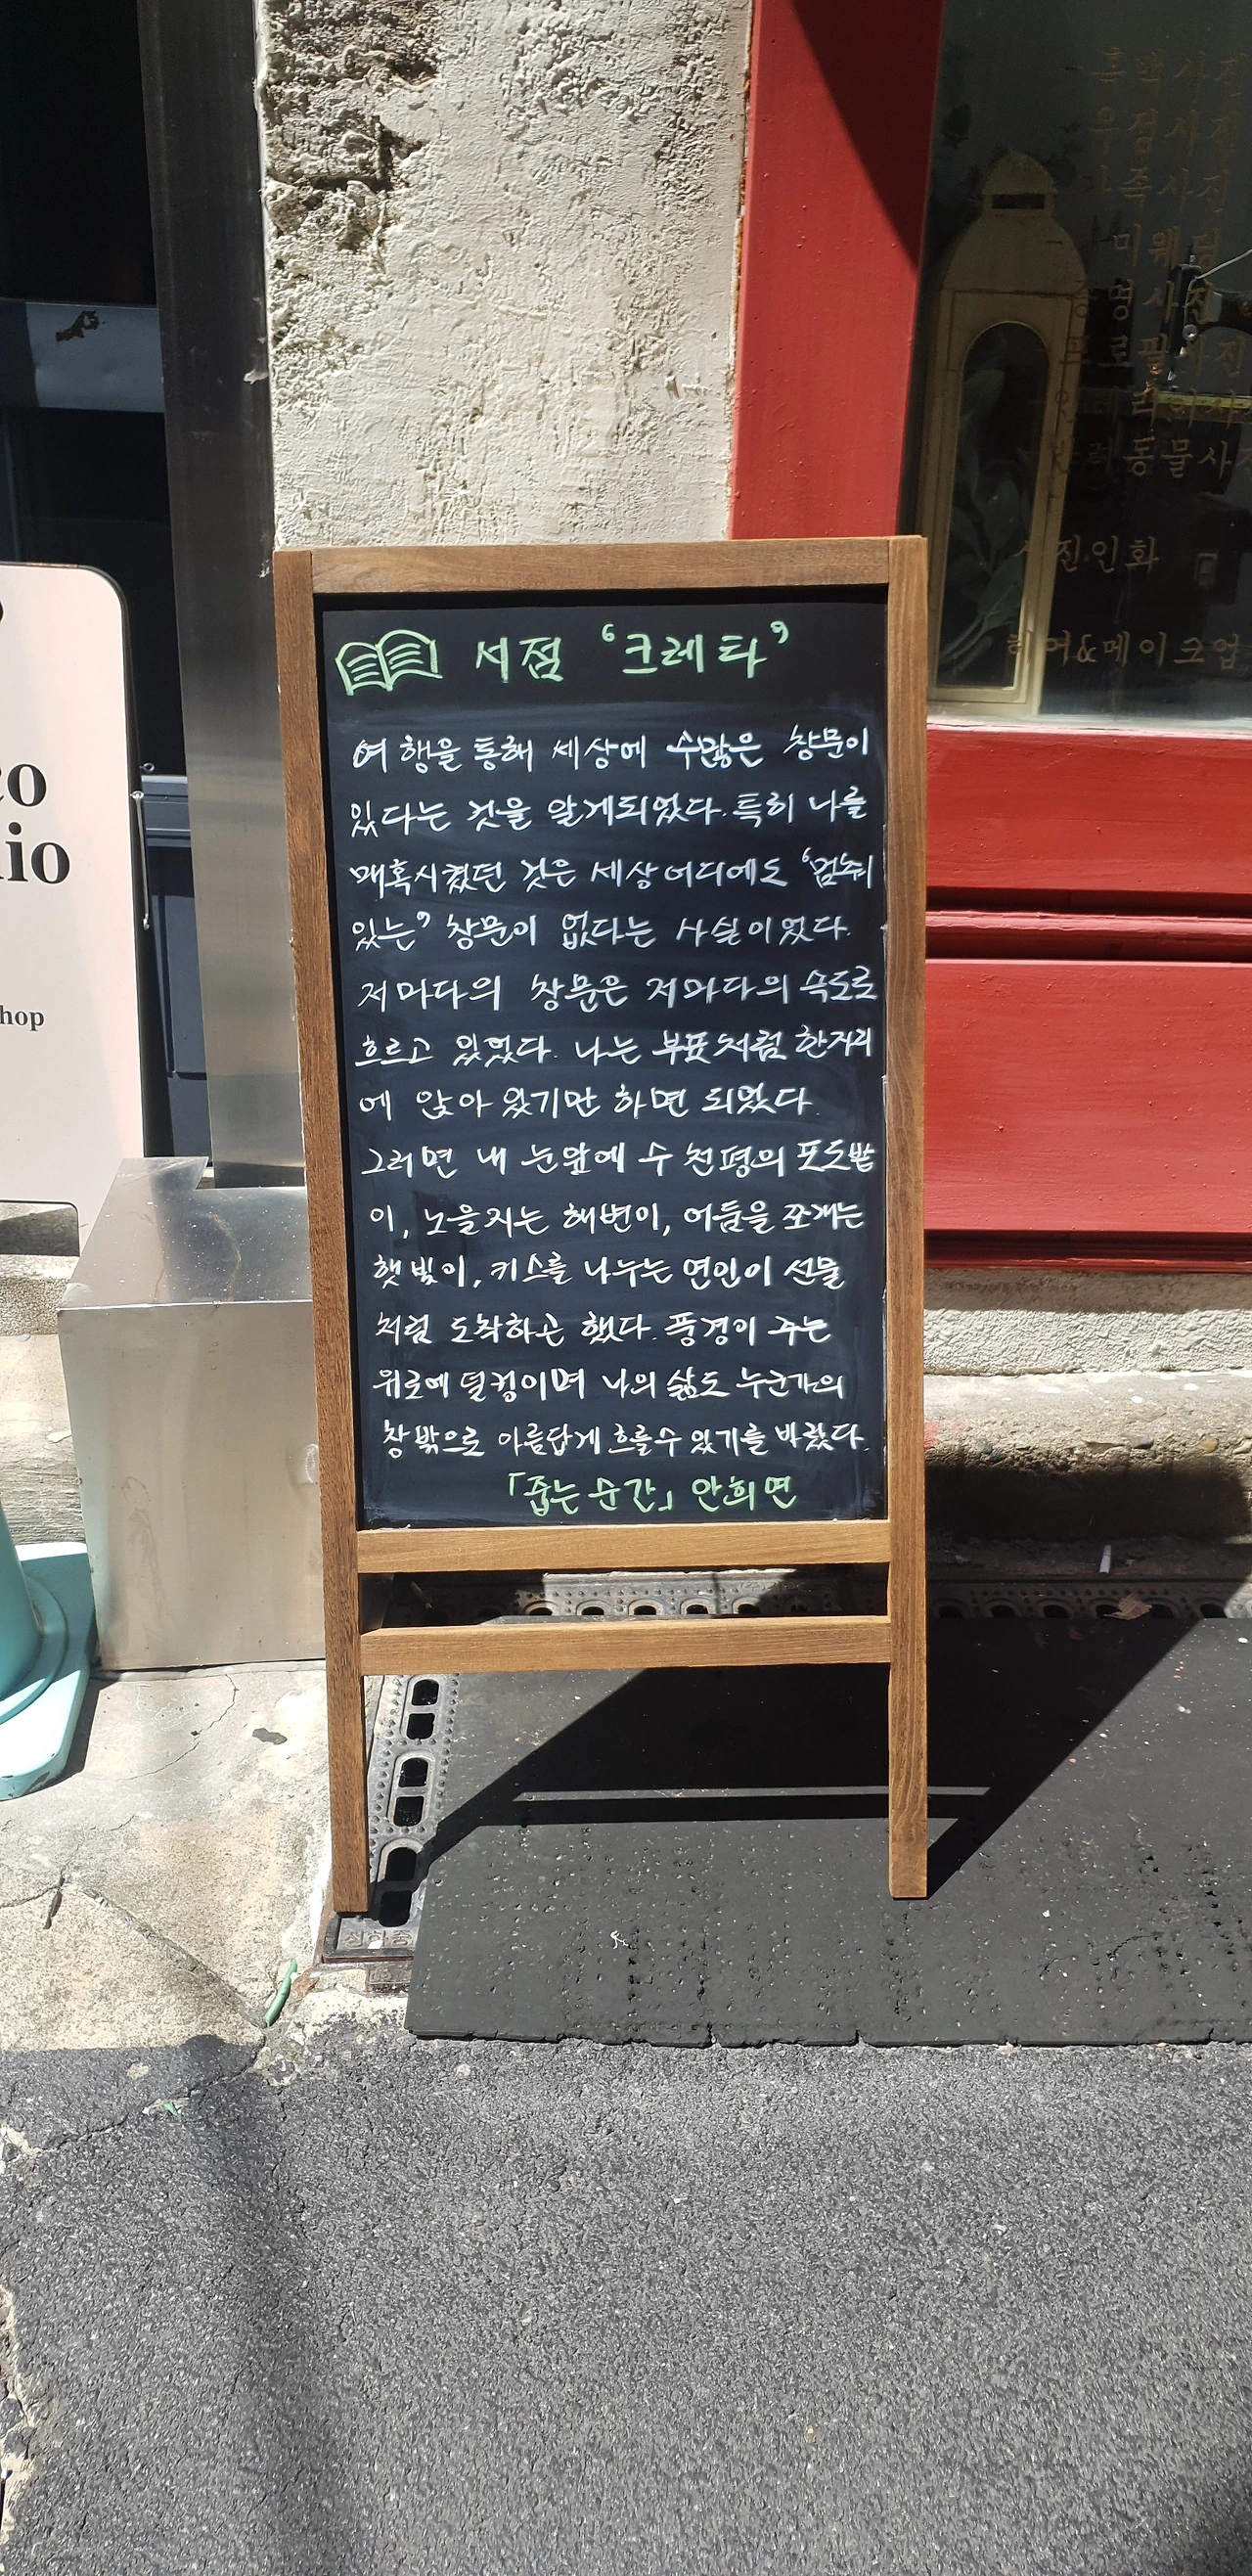 서점 '크레타'
여행을 통해 세상에 수많은 창문이
있다는 것을 알게되었다. 특히 나를
매혹시켰던 것은 세상 어디에도 '멈춰
있는' 창문이 없다는 사실이었다.
저마다의 창문은 저마다의 속도로
흐르고 있었다. 나는 부표처럼 한자리
에 앉아 있기만 하면 되었다.
그러면 내 눈앞에 수 천평의 포도밭
이, 노을지는 해변이, 어둠을 쪼개는
햇빛이, 키스를 나누는 연인이 선물
처럼 도착하곤 했다. 풍경이 주는
위로에 덜컹이며 나의 삶도 누군가의
창밖으로 아름답게 흐를수 있기를 바랐다.
「줍는 순간」 안희연
흑백사진
우정사진
족사진
미웨딩
증명사진
프로필사진
반려동물사진
사진인화
헤어&메이크업
co
io
hop